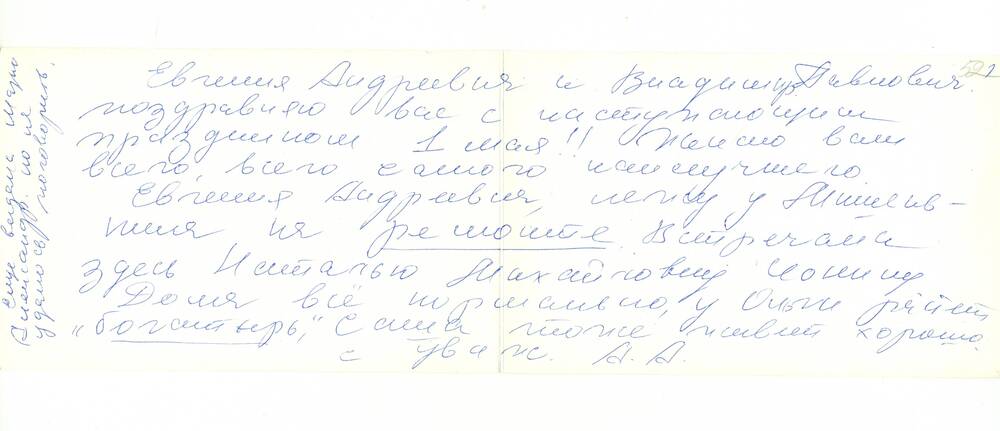 Евгения Андреевна и Владимир Павлович.
поздравляю вас с наступающим
праздником 1 мая!! Желаю вам
всего, всего самого наилучшего
Евгения Андреевна, лежу у
на ремонте. Встречала
здесь Наталью Михайловну
Дома всё нормально, у Ольги растёт
"богатырь", Саша тоже живёт хорошо.
с уваж. А. А.
Еще видела Марью
Александр. но не
удалось поговорить.
521